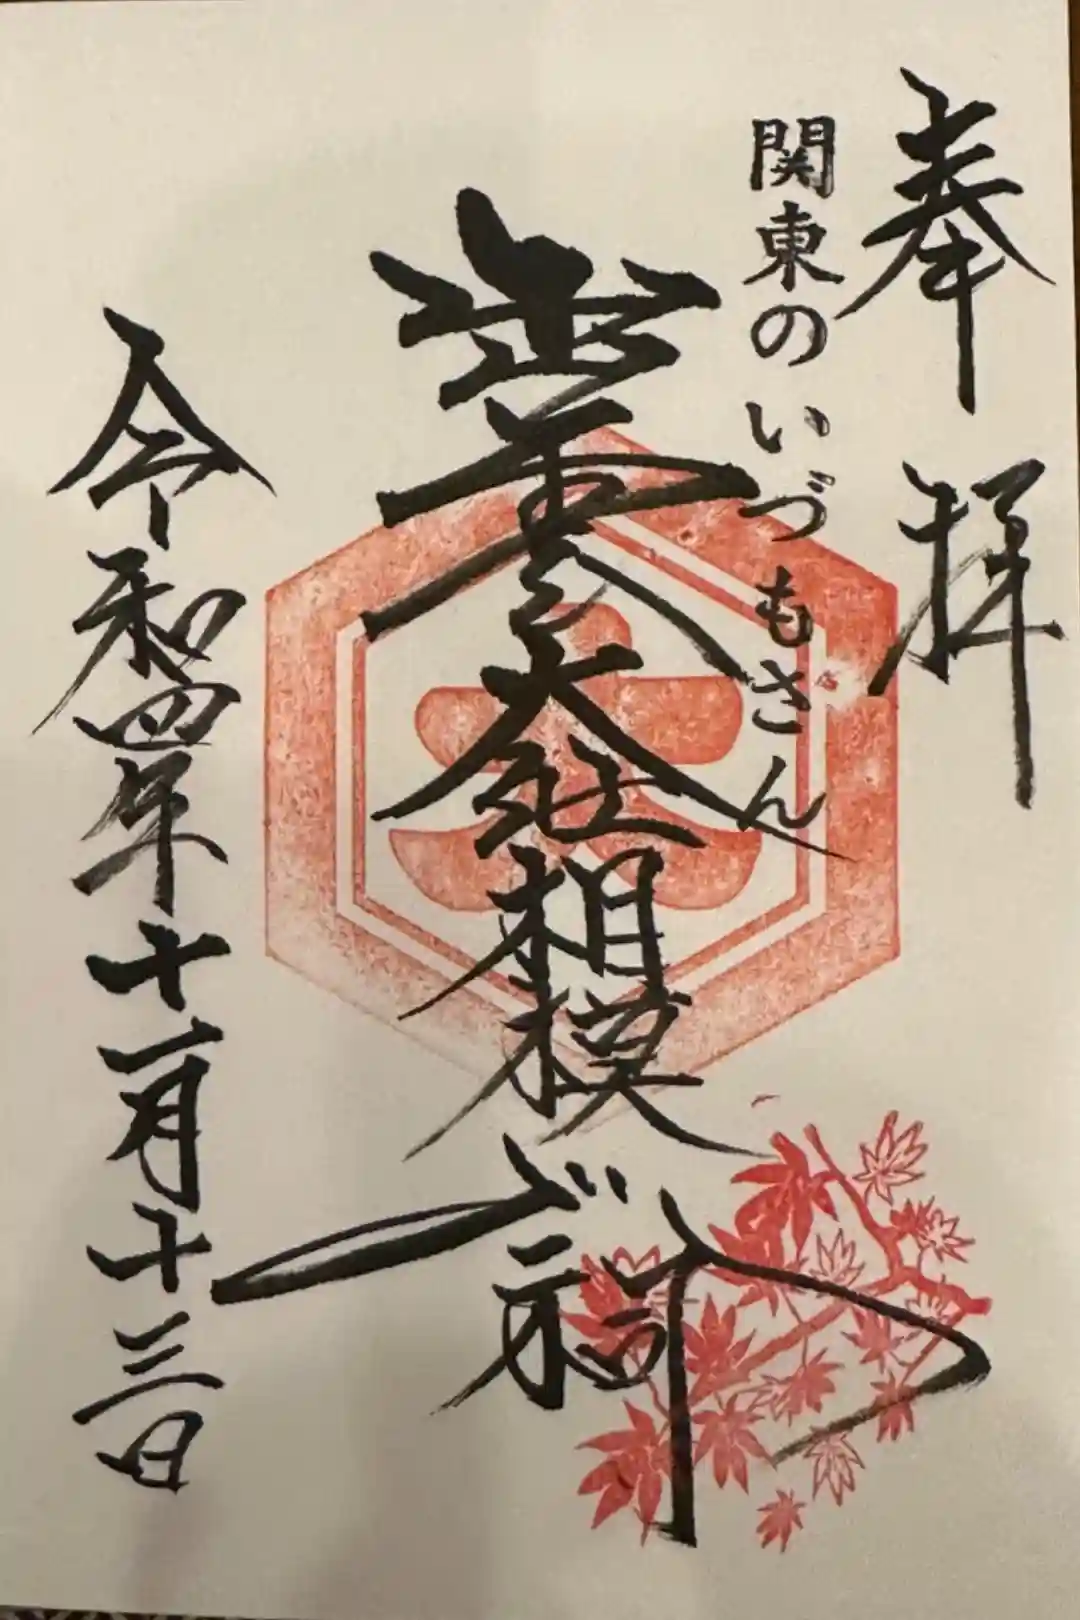 奉拝
関東のいづもさん
出雲大社相模分祠
令和四年十一月十三日